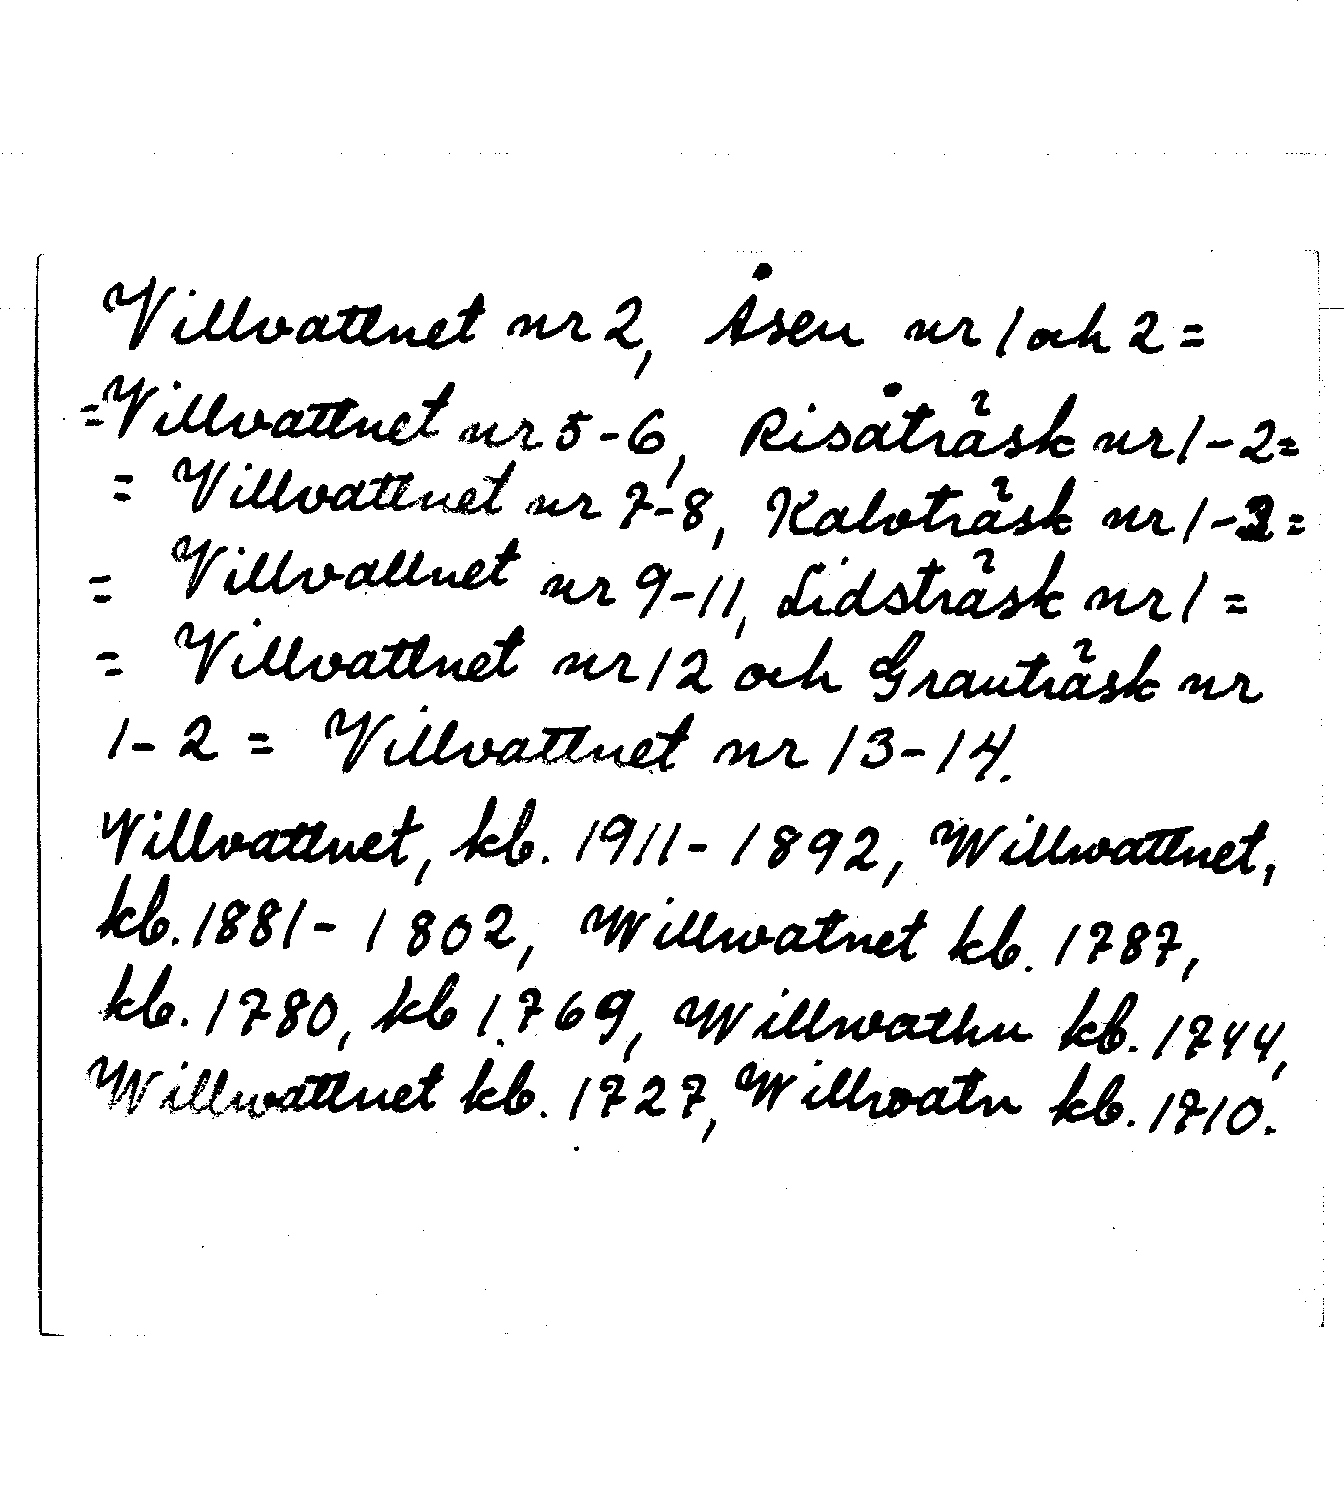 Villvattnet nr 2, Åsen nr 1 och 2 =
= Villvattnet nr 5-6, Risåträsk nr 1-2 =
= Villvattnet nr 7-8, Kalvträsk nr 1-3 =
= Villvattnet nr 9-11, Lidsträsk nr 1 =
= Villvattnet nr 12 och Granträsk nr
1-2 = Villvattnet nr 13-14.
Villvattnet, kb. 1911-1892, Willwattnet,
kb. 1881-1802, Willwatnet kb. 1787,
kb. 1780, kb 1769, Willwathn kb. 1744,
Willwattnet kb. 1727, Willwatn kb. 1710.